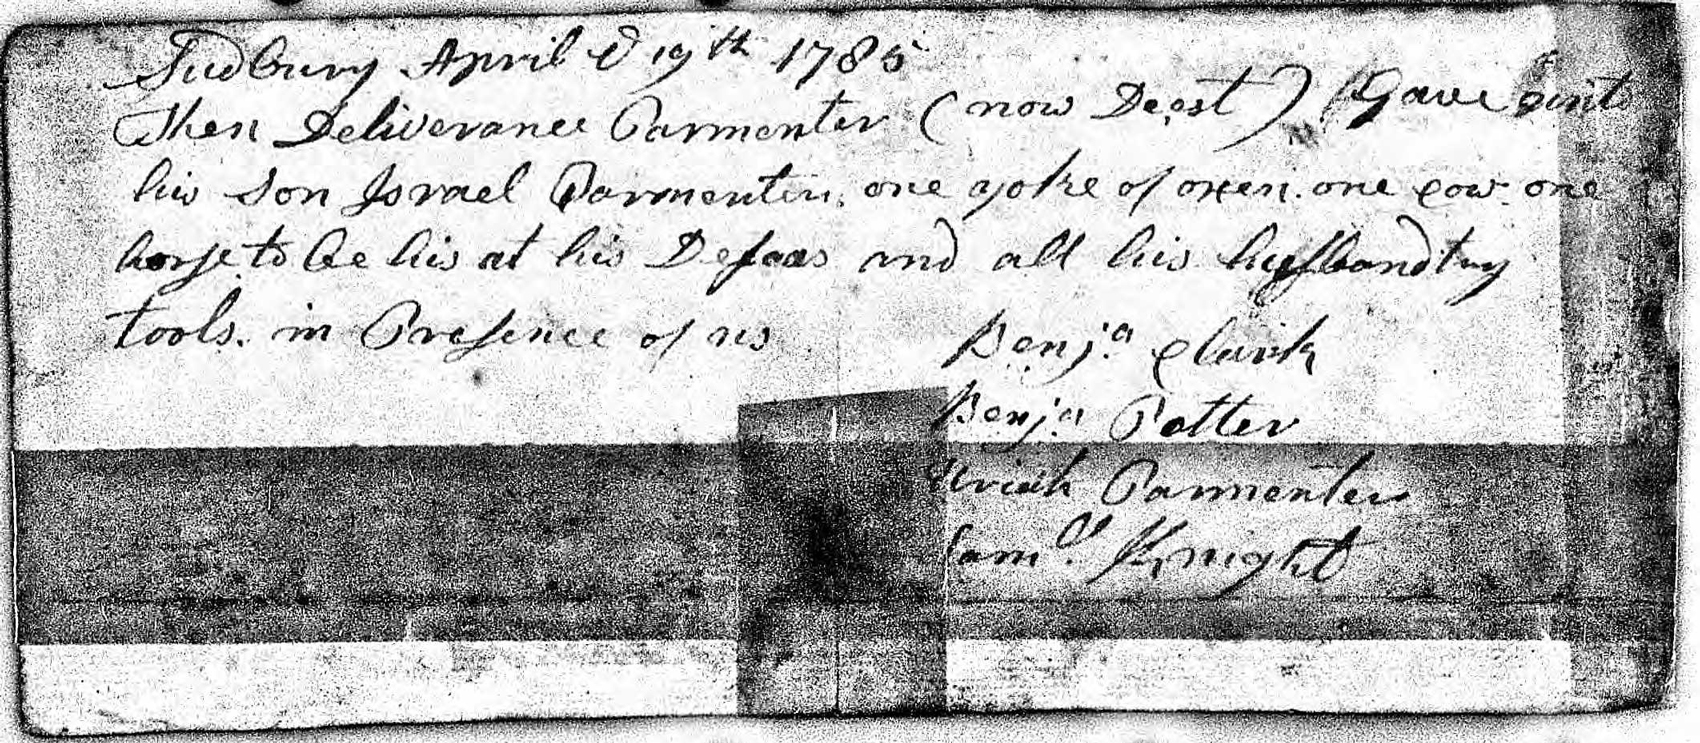 Sudbury April ye 19th 1785
Then Deliverance Parmenter (now Decst) Gave unto
his son Israel Parmenter, one yoke of oxen. one cow. one
horse to be his at his Deseas and all his husbandtry
tools. in Presence of us
Benja Clark
Benja Potter
Uriah Parmenter
Samll Knight